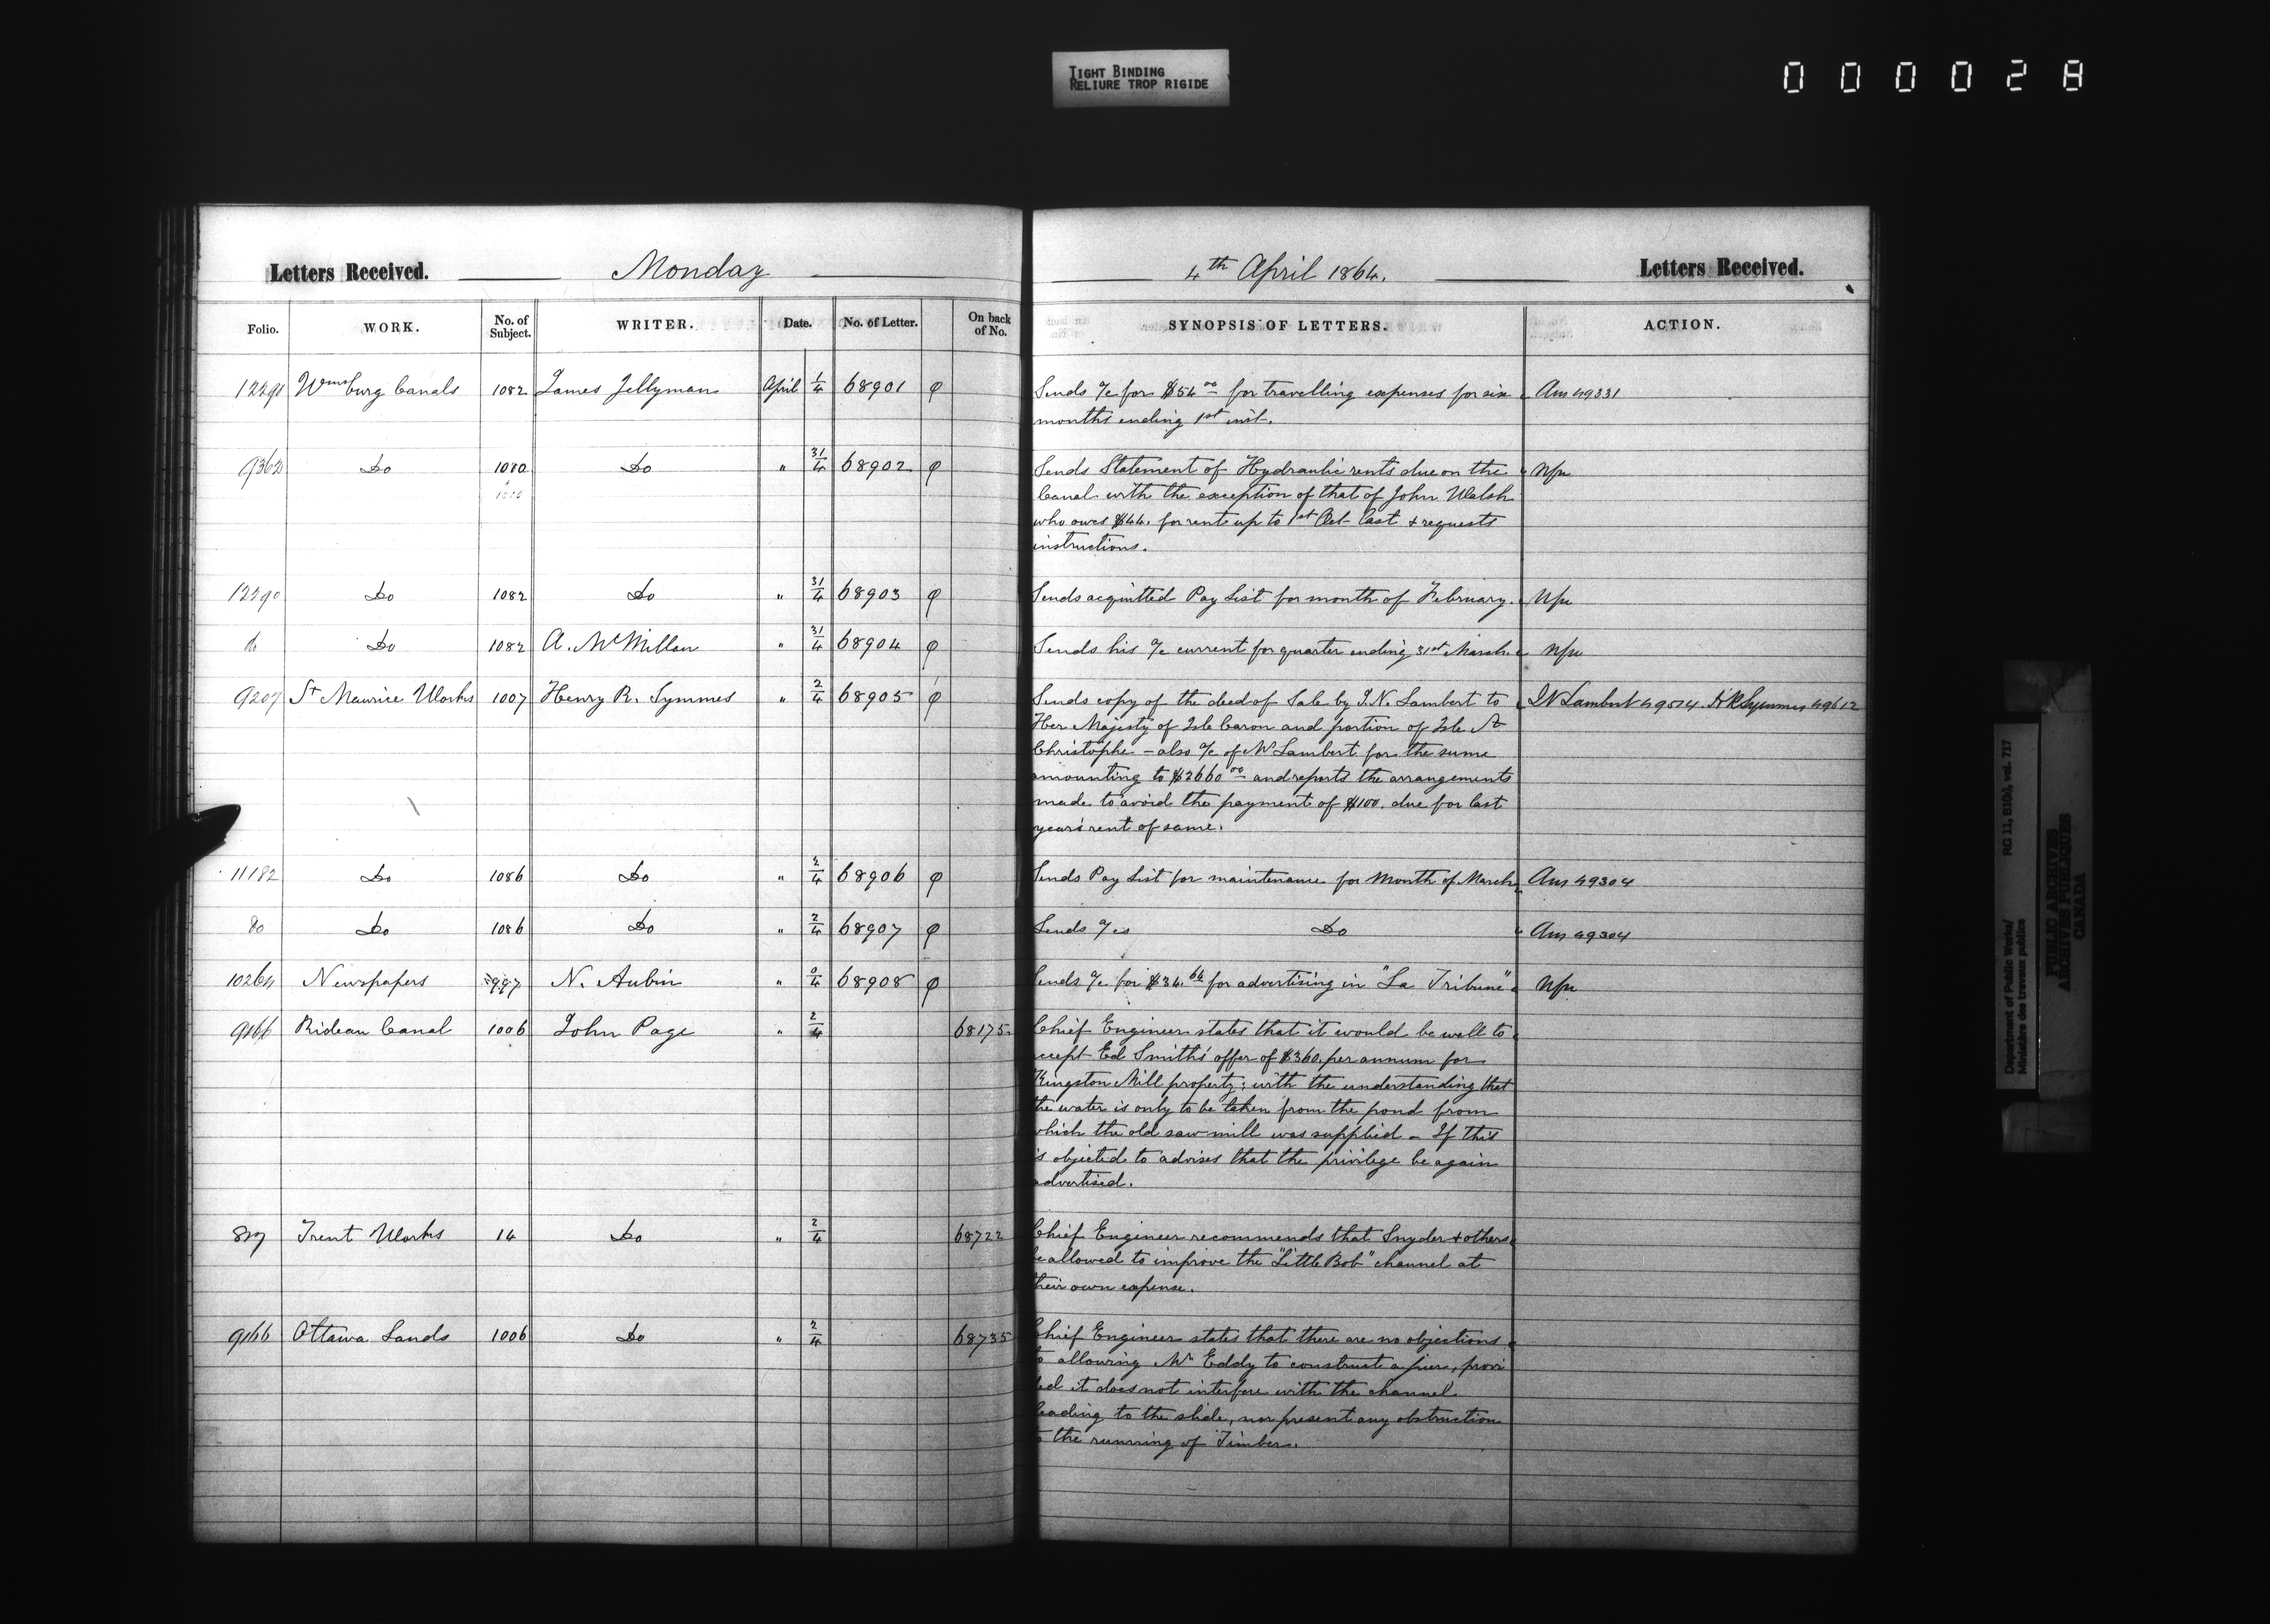 TIGHT BINDING
RELIURE TROP RIGIDE
000028
Letters Received. Monday 4th April 1864. Letters Received.
Folio. WORK. No. of Subject. WRITER. Date. No. of Letter. On back of No. SYNOPSIS OF LETTERS. ACTION.
12290 Wmsburg Canals 1082 James Jellyman April 1/4 68901 φ Sends a/c for $54.00 for travelling expenses for six Ans 49331
months ending 1st inst.
9362 Do 1080 Do " 31/4 68902 φ Sends Statement of Hydraulic rents due on the Nfu
Canal with the exception of that of John Walsh
who owes $44. for rent up to 1st Oct last & requests
instructions.
12290 Do 1082 Do " 31/4 68903 φ Sends acquitted Pay List for month of February. Nfu
do Do 1082 A. McMillan " 31/4 68904 φ Sends his a/c current for quarter ending 31st March. Nfu
9207 St Maurice Works 1007 Henry R. Symmes " 2/4 68905 φ Sends copy of the deed of Sale by I.N. Lambert to IN Lambert 49514. HR Symmes 49612
Her Majesty of Isle Caron and portion of Isle St
Christophe - also a/c of Mr Lambert for the same
amounting to $2660.00 and reports the arrangements
made to avoid the payment of $100. due for last
year's rent of same.
11182 Do 1086 Do " 2/4 68906 φ Sends Pay List for maintenance for Month of March Ans 49304
Do Do 1086 Do " 2/4 68907 φ Sends a/cs Do Ans 49304
10264 Newspapers 997 N. Aubin " 0/4 68908 φ Sends a/c for $34.64 for advertising in "La Tribune" Nfu
9166 Rideau Canal 1006 John Page " 2/4 68175 Chief Engineer states that it would be well to
accept Ed Smith's offer of $360. per annum for
Kingston Mill property; with the understanding that
the water is only to be taken from the pond from
which the old saw mill was supplied - If this
is objected to advises that the privilege be again
advertised.
Trent Works 14 Do " 2/4 68722 Chief Engineer recommends that Snyder & others
be allowed to improve the "Little Bob" channel at
their own expense.
9166 Ottawa Lands 1006 Do " 2/4 68735 Chief Engineer states that there are no objections
to allowing Mr Eddy to construct a pier, provi
ded it does not interfere with the channel
leading to the slide, nor present any obstruction
to the running of Timber.
Department of Public Works/
Ministère des travaux publics
RG 11, B1(b), vol. 717
PUBLIC ARCHIVES
ARCHIVES PUBLIQUES
CANADA